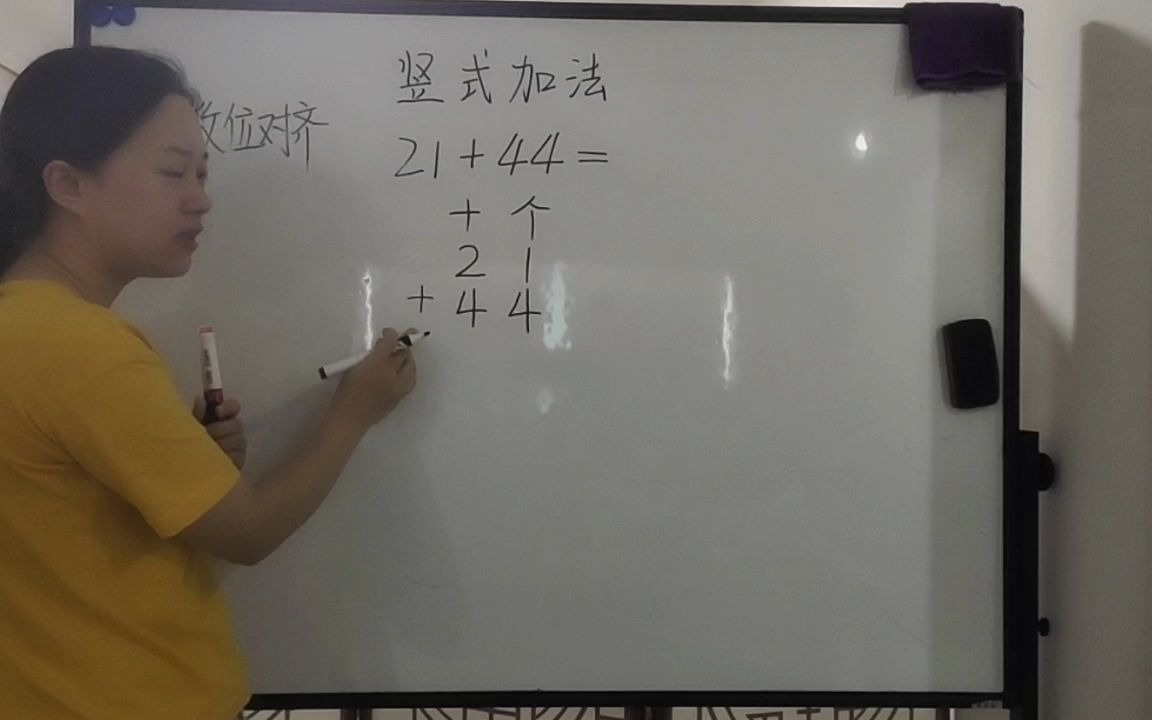 竖式加法
数位对齐
21+44=
十 个
2 1
+ 4 4